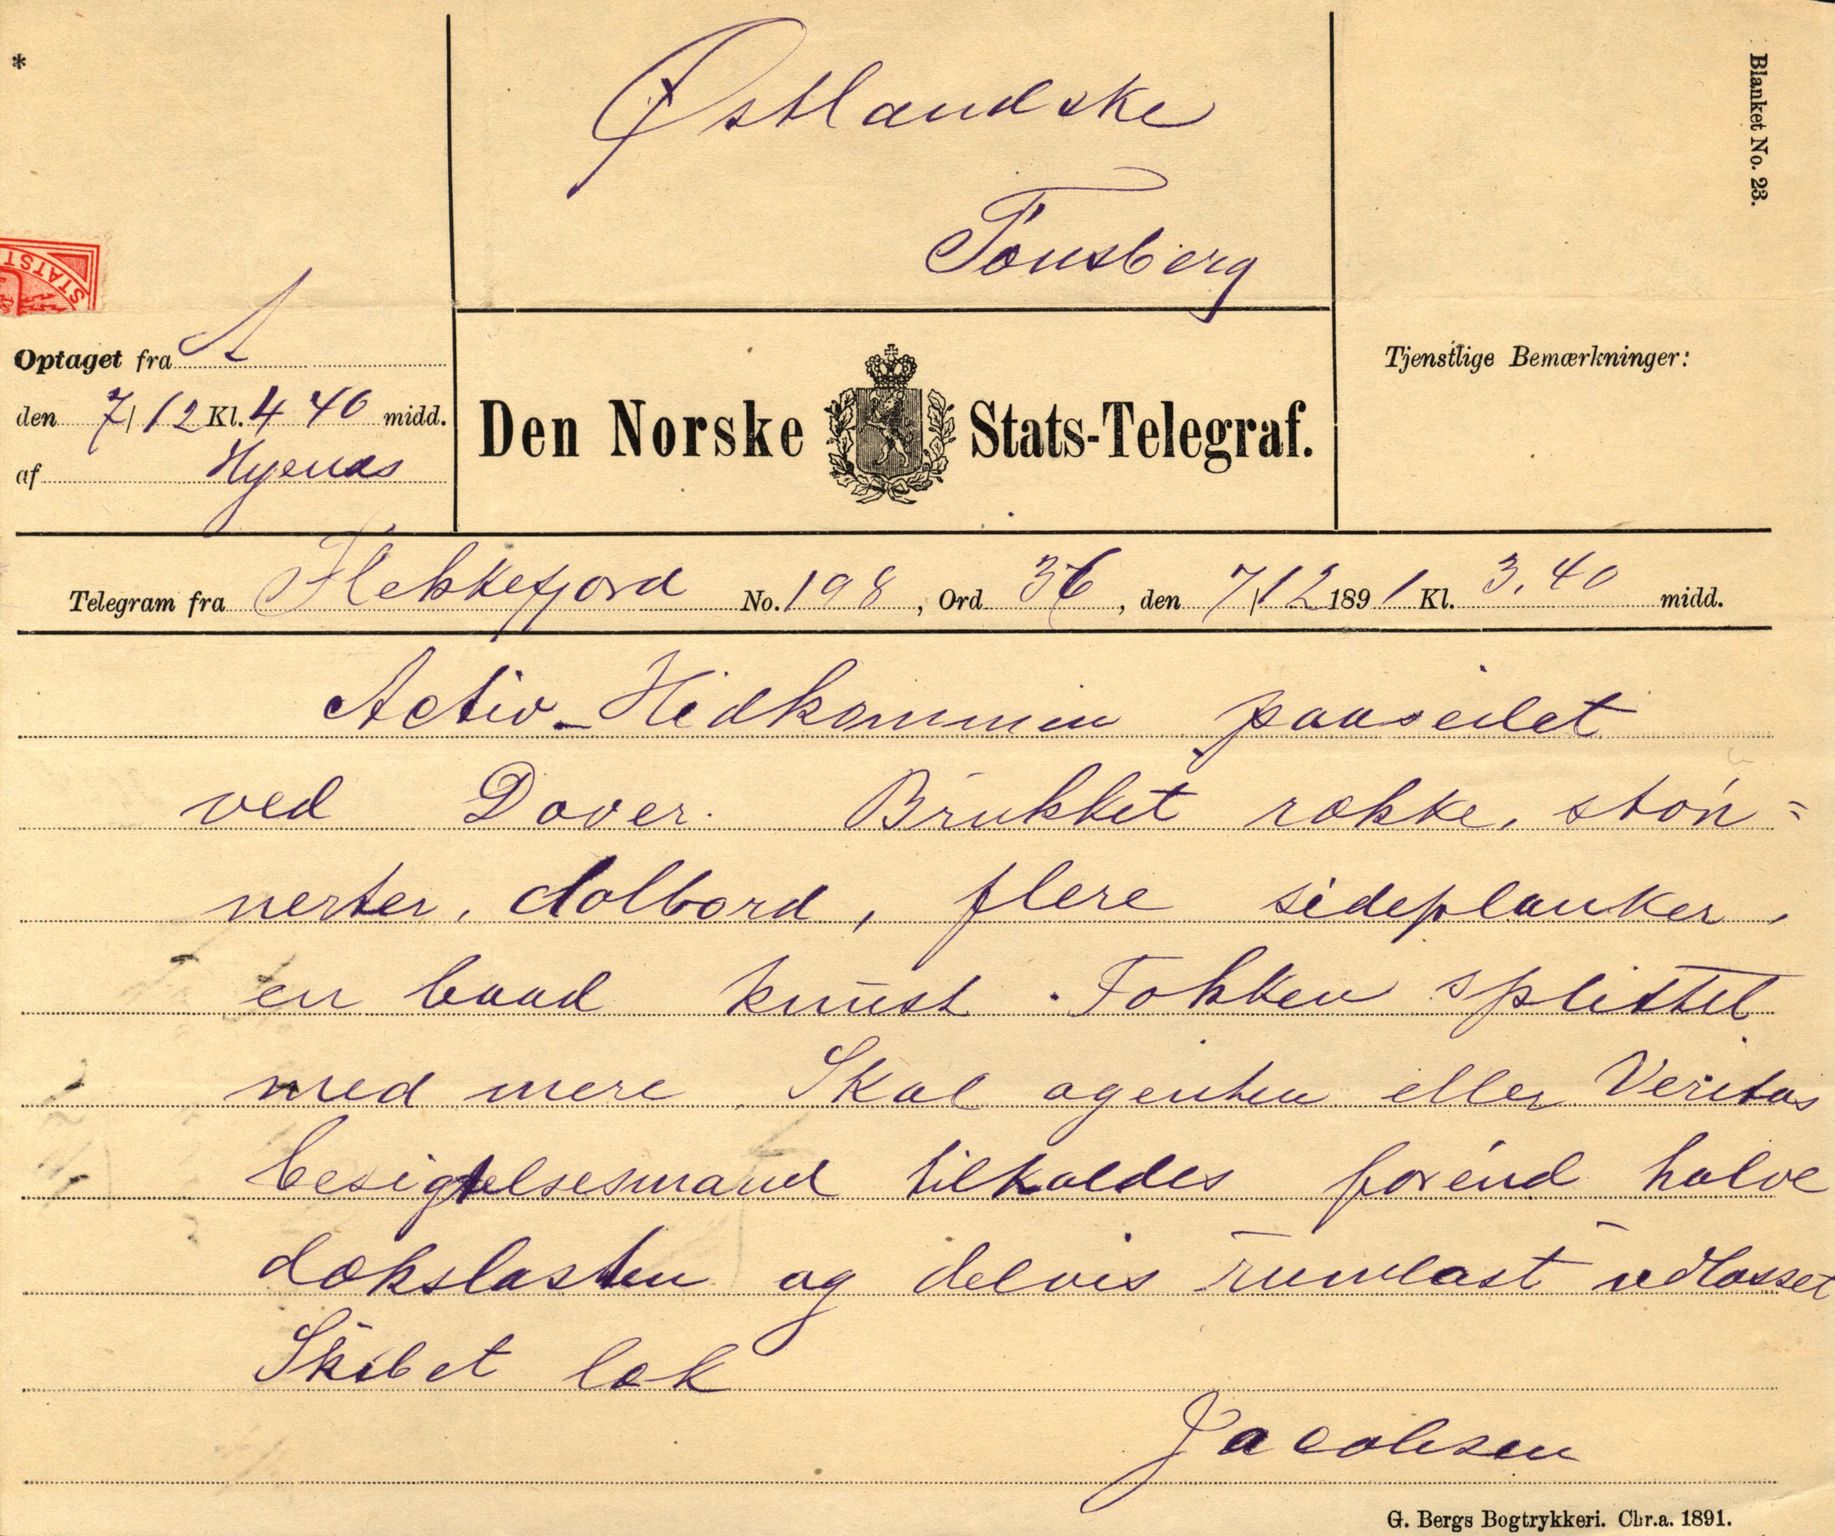 *
Østlandske
Blanket No. 23.
Tönsberg
STATST
Optaget fra A
den 7/12 Kl. 4 40 midd.
af Hyenæs
Den Norske Stats-Telegraf.
Tjenstlige Bemærkninger:
Telegram fra Flekkefjord No. 198, Ord 36, den 7/12 1891 Kl. 3.40 midd.
Activ - Hidkommen paaseilet
ved Dover. Brukket række, støn=
nerter, dolbord, flere sideplanker,
en baad knust. Fokken splittet
med mere. Skal agenten eller Veritas
besigtelsesmand tilkaldes förend halve
dækslasten og delvis rumlast udlosset
Skibet læk
Jacobsen
G. Bergs Bogtrykkeri. Chr.a. 1891.